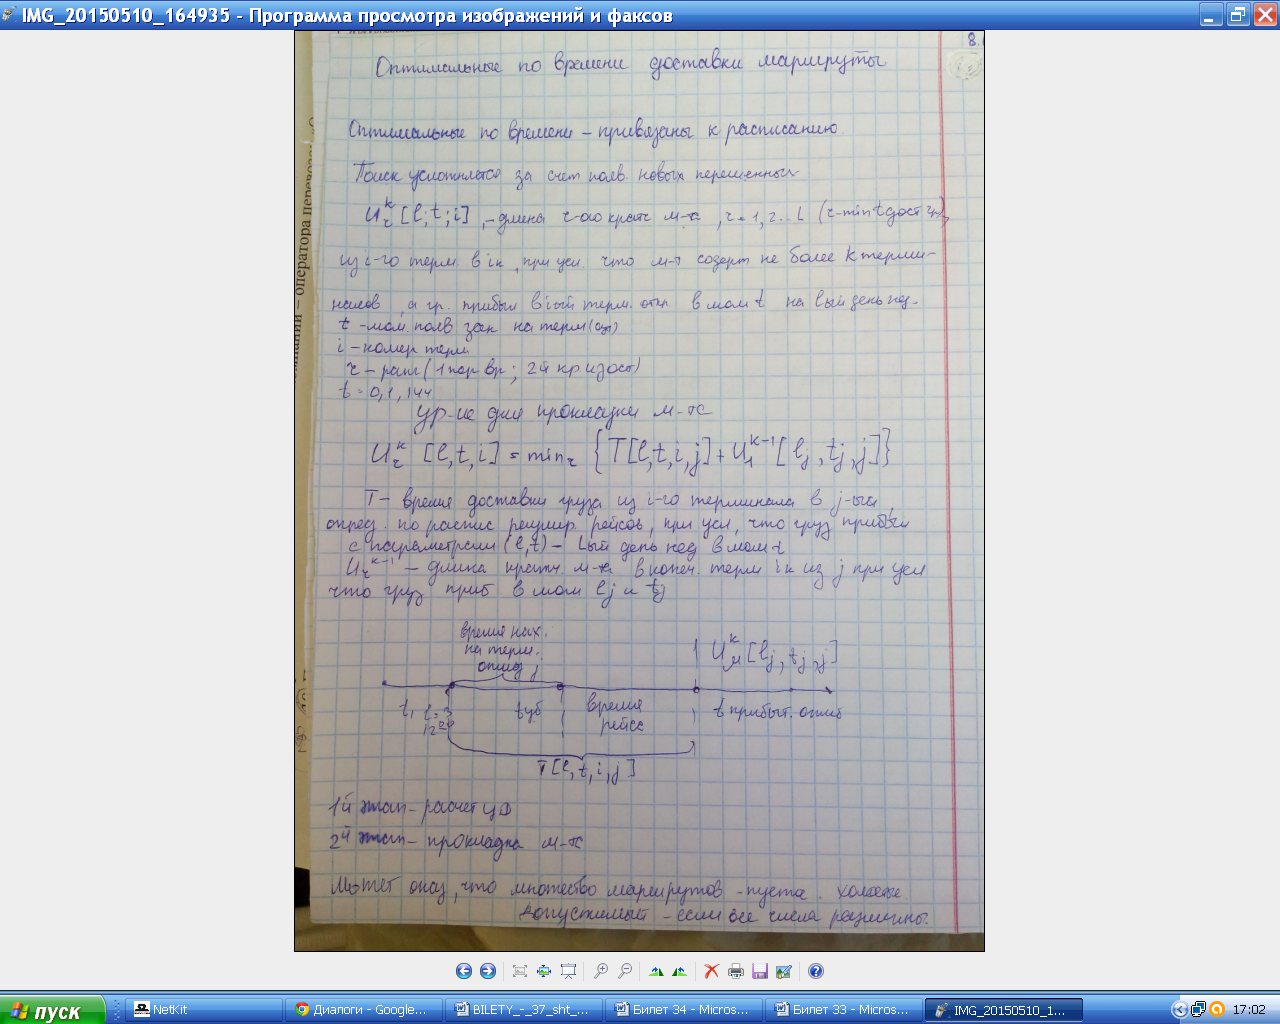 IMG_20150510_164935 - Программа просмотра изображений и факсов
8.
Оптимальные по времени доставки маршруты
– оператора перевозо
Оптимальные по времени – привязаны к расписанию.
Поиск усложняется за счет появ. новых переменных
U_r^k [l; t; i], – длина r-ого кратч м-та, r = 1, 2 ... L (r - min t дост гр),
из i-го терм. в iк, при усл. что м-т содерж не более k терми-
налов, а гр. прибыл в i-ый терм. отпр. в мом t на l-ый день нед.
t – мом. появ зак на терм (отп)
i – номер терм
r – ранг (1 пор вр; 2й кр и дост)
t = 0, 1, 144
ур-ие для прокладки м-та
U_r^k [l, t, i] = min_r { T[l, t, i, j] + U_1^{k-1} [l_j, t_j, j] }
T – время доставки груза из i-го терминала в j-ый
опред. по распис регуляр. рейсов, при усл, что груз прибыл
с параметрами (l, t) – l-ый день нед в мом t
U_r^{k-1} – длина кратч. м-та в конеч. терм iк из j при усл
что груз приб в мом l_j и t_j
время нах.
на терм.
U^k [l_j, t_j, j]
t, l = 3
t уб
время
рейса
t прибыт.
T [l, t, i, j]
1й этап – расчет ЦД
2й этап – прокладка м-та
Может оказ, что множество маршрутов – пусто.
Допустимый – если все числа различны.
пуск
NetKit
Диалоги - Google...
BILETY_-_37_sht_...
Билет 34 - Micros...
Билет 33 - Micros...
IMG_20150510_1...
17:02